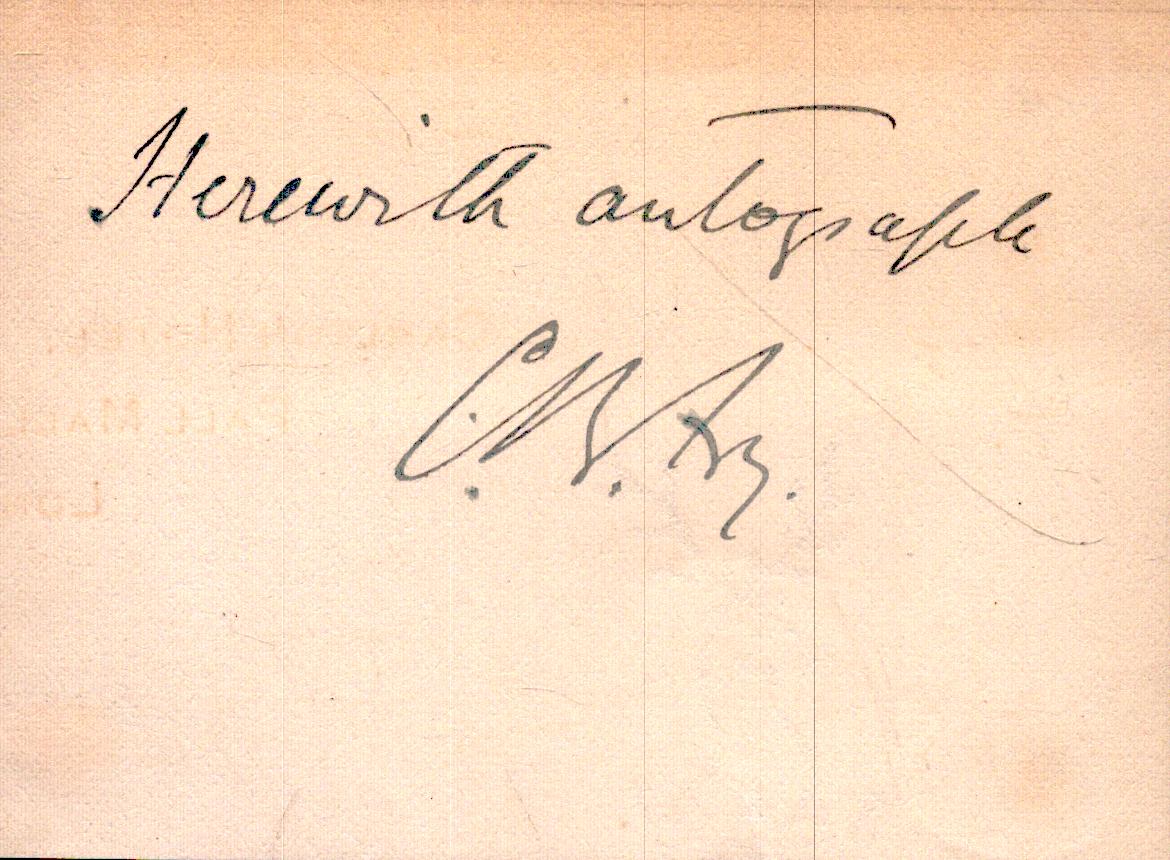 Herewith autograph
C. B. Fry.